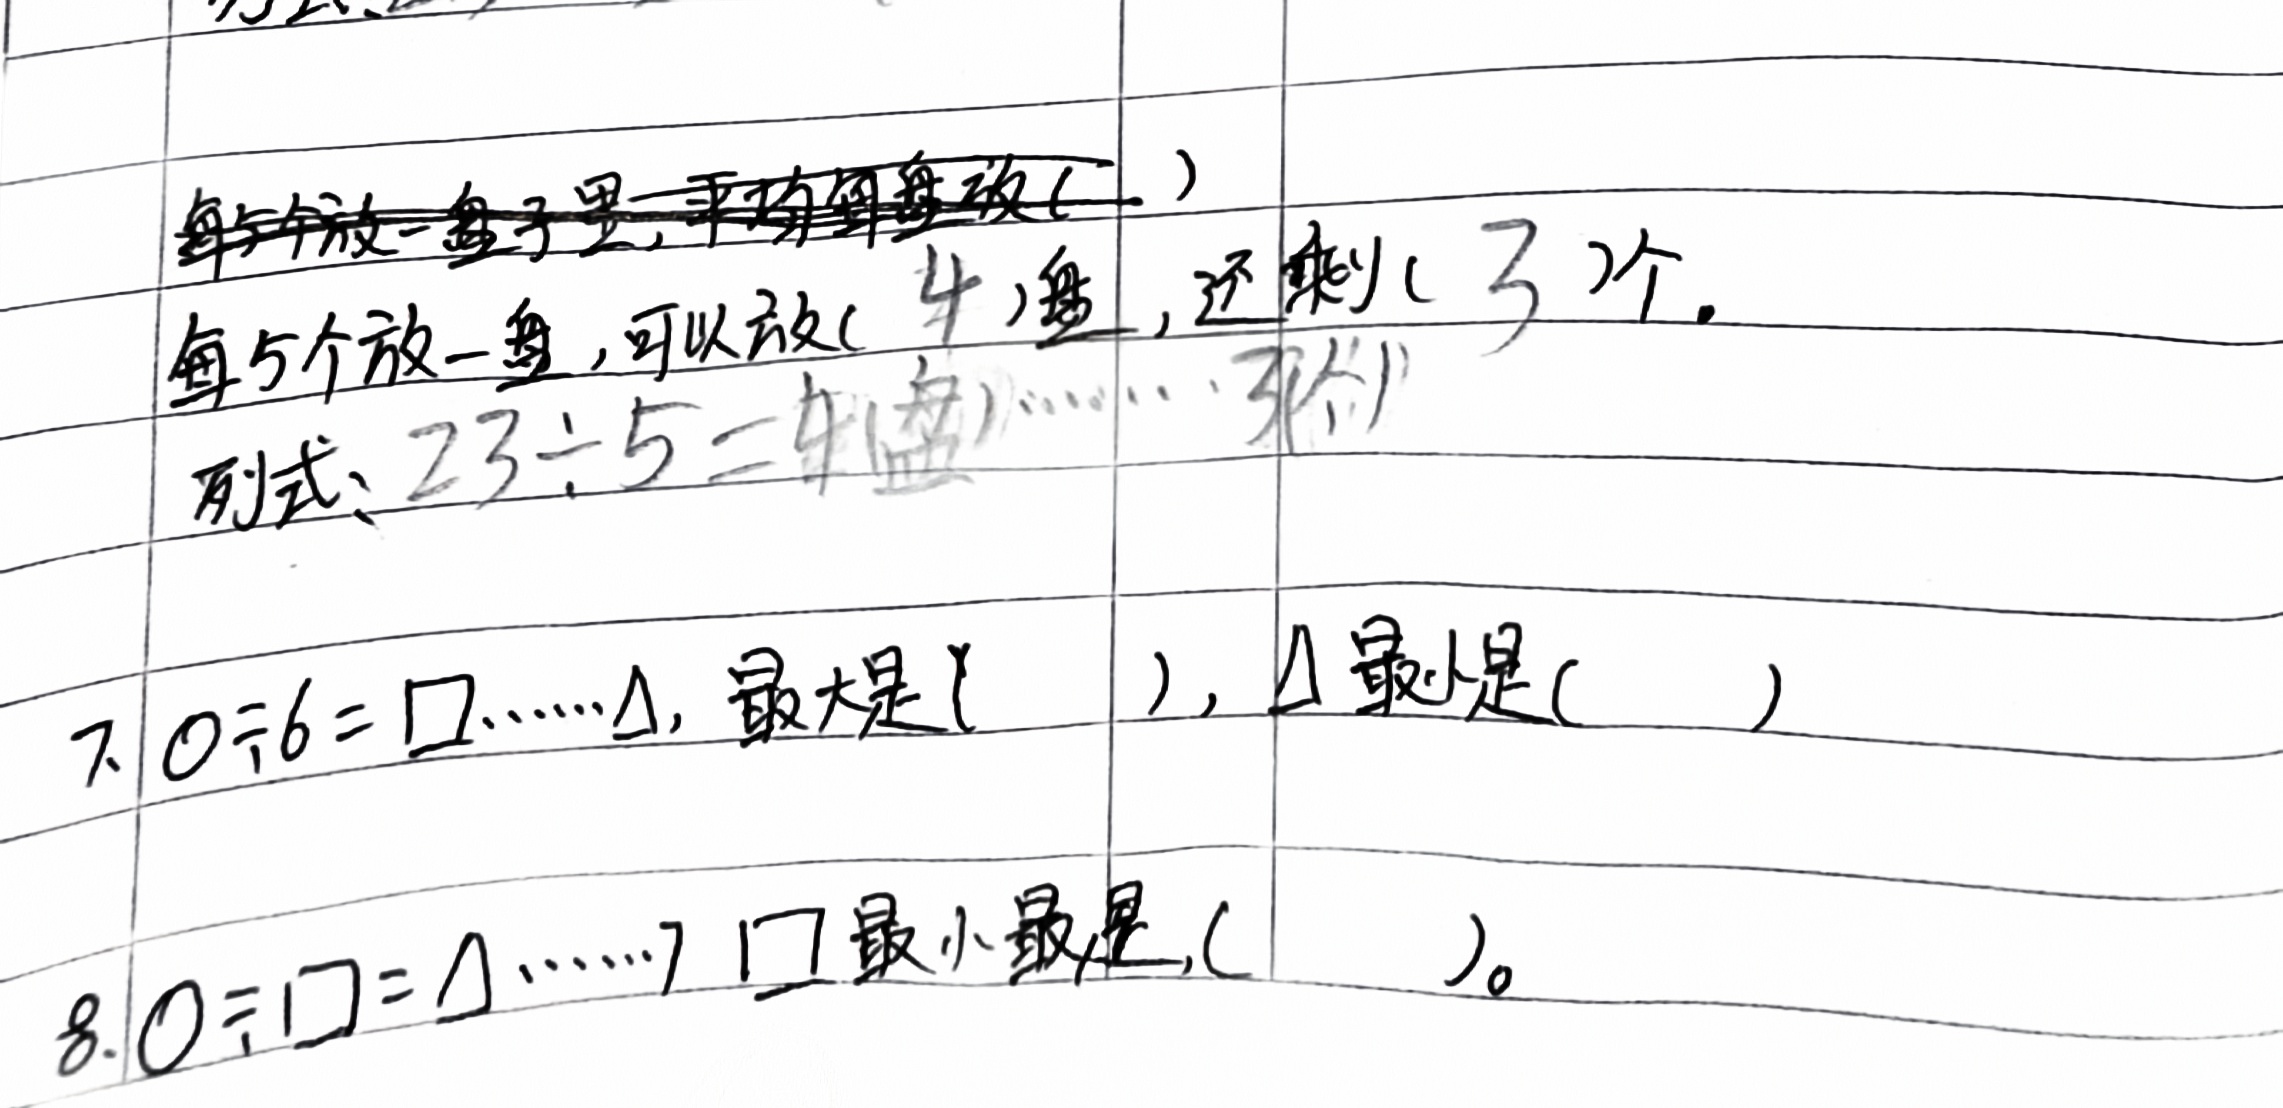 每5个放一盘子里,平均每盘放( )
每5个放一盘,可以放(4)盘,还剩(3)个.
列式、23÷5=4(盘)……3(个)
7、○÷6=□……△,最大是( ),△最小是( )
8.○÷□=△……7 □最小最是,( )。